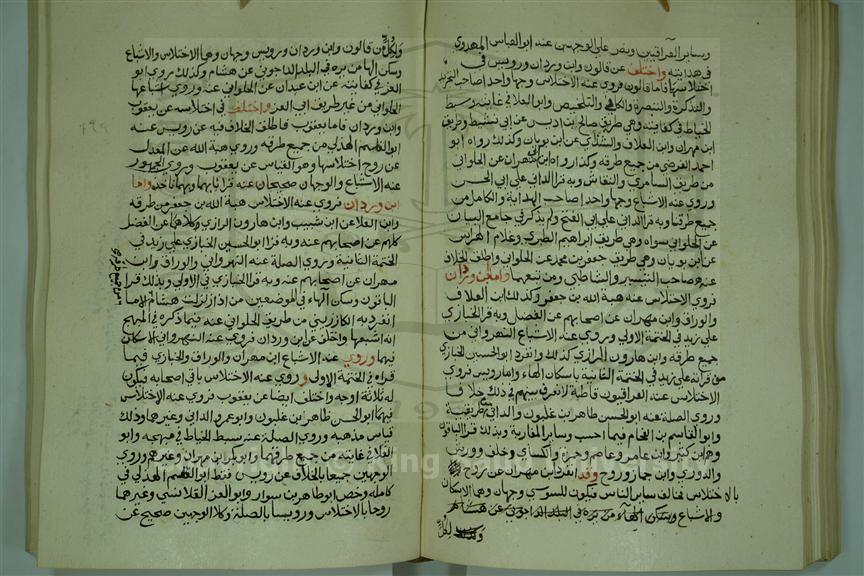 وسائر العراقيين ونص على الوجهين عنه ابو العباس المهدوي
في هدايته واختلف عن قالون وابن وردان ورويس في
اختلاسها فاما قالون فروى عنه الاختلاس وجها واحدا صاحب التجريد
والتذكرة والتبصرة والكافي والتلخيص وابو العلا في غايته وسبط
الخياط في كفايته وهي طريق صالح بن ادريس عن ابي نشيط وطريق
ابن مهران وابن العلاف والشذائي عن ابن بويان وكذلك رواه ابو
احمد الفرضي من جميع طرقه وكذا رواه ابن ابي مهران عن الحلواني
من طريق السامري والنقاش وبه قرا الداني على ابي الحسن
وروى عنه الاشباع وجها واحدا صاحب الهداية والكامل من
جميع طرقنا وبه قرا الداني على ابي الفتح ولم يذكر في جامع البيان
عن الحلواني سواه وهي طريق ابراهيم الطبري وغلام الهراس
عن ابن بويان وهي طريق جعفر بن محمد عن الحلواني واطلق الخلاف
عنه صاحب التيسير والشاطبي ومن تبعهما واما ابن وردان
فروى الاختلاس عنه هبة الله بن جعفر وكذلك ابن العلاف
والوراق وابن مهران عن اصحابهم عن الفضل وبه قرا الخبازي
على زيد في الختمة الاولى وروى عنه الاشباع النهرواني من
جميع طرقه وابن هارون الرازي كذلك وانفرد ابو الحسين الخبازي
من قراته على زيد في الختمة الثانية باسكان الهاء واما رويس فروى
الاختلاس عنه العراقيون قاطبة لا نعرف بينهم في ذلك خلافا
وروى الصلة عنه ابو الحسن طاهر بن غلبون والداني من طريقيه
وابو القاسم بن الفحام فيما احسب وسائر المغاربة وبذلك قرا الباقون
وهم ابن كثير وابن عامر وعاصم وحمزة والكسائي وخلف وورش
والدوري وابن جماز وروح وقد انفرد ابن مهران عن روح
بالاختلاس فخالف سائر الناس فيكون للسوسي وجهان وهما الاسكان
والاشباع
وكذلك
ولكل من قالون وابن وردان ورويس وجهان وهما الاختلاس والاشباع
وسكن الها من يره في البلد الداجوني عن هشام وكذلك روى ابو
العز في كفايته عن ابن عبدان عن الحلواني عنه وروى اشباعها
الحلواني من غير طريق ابي العز واختلف في اختلاسه عن يعقوب
وابن وردان فاما يعقوب فاطلق الخلاف فيه عن رويس عنه
ابو القاسم الهذلي من جميع طرقه وروى هبة الله عن المعدل
عن روح اختلاسها وهو القياس عن يعقوب وروى الجمهور
عنه الاشباع والوجهان صحيحان عنه قرانا بهما وبهما ناخذ واما
ابن وردان فروى عنه الاختلاس هبة الله بن جعفر من طرقه
وابن العلاف عن ابن شبيب وابن هارون الرازي وكلاهما عن الفضل
كلهم عن اصحابهم عنه وبه قرا ابو الحسين الخبازي على زيد في
الختمة الثانية وروى الصلة عنه النهرواني والوراق وابن
مهران عن اصحابهم عنه وبه قرا الخبازي في الاولى وبذلك قرا
الباقون وسكن الهاء في الموضعين من اذا زلزلت هشام الا ما
انفرد به الكارزيني من طريق الحلواني عنه فيما ذكره في المبهج
انه اشبعها واختلف عن ابن وردان فروى عنه النهرواني الاسكان
فيهما وروى عنه الاشباع ابن مهران والوراق والخبازي فيما
قراه في الختمة الاولى وروى عنه الاختلاس باقي اصحابه فيكون
له ثلاثة اوجه واختلف ايضا عن يعقوب فروى عنه الاختلاس
فيهما ابو الحسن طاهر بن غلبون وابو عمرو الداني وغيرهما وذلك
قياس مذهبه وروى الصلة عنه سبط الخياط في مبهجه وابو
العلا في غايته من جميع طرقهما وابو بكر بن مهران وغيرهم وروى
الوجهين جميعا بالخلاف عن رويس فقط ابو القسم الهذلي في
كامله وخص ابو طاهر بن سوار وابو العز القلانسي وغيرهما
روحا بالاختلاس ورويسا بالصلة وكلا الوجهين صحيح عن